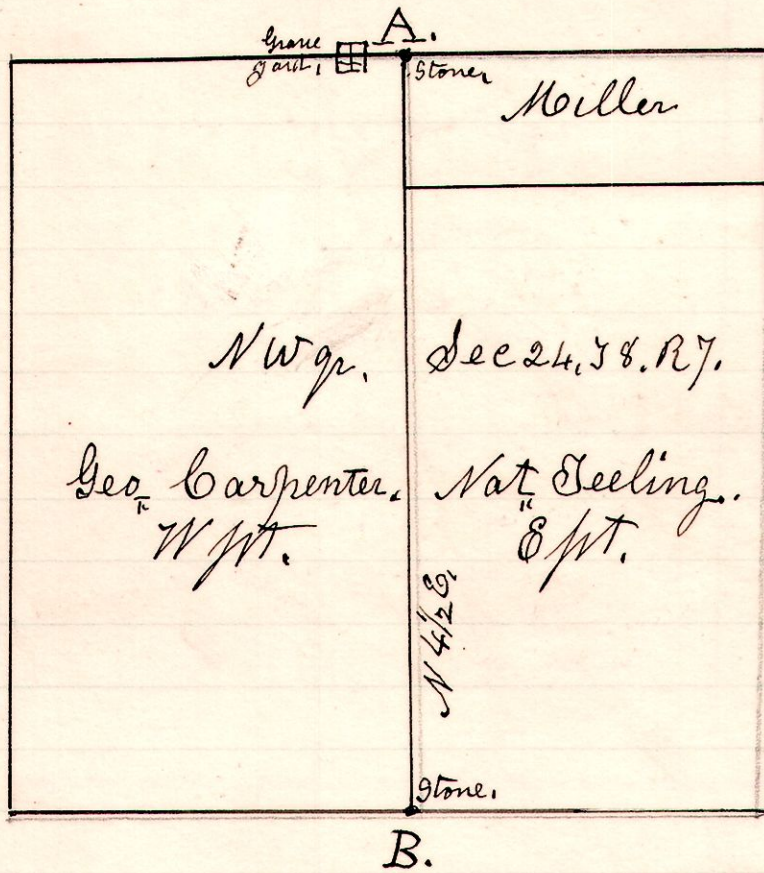 A.
Grave
yard,
Stone,
Miller
N W qr. Sec 24, T 8. R 7.
Geo. Carpenter. Nat. Teeling.
W pt. E pt.
N 4 1/2 E,
Stone.
B.